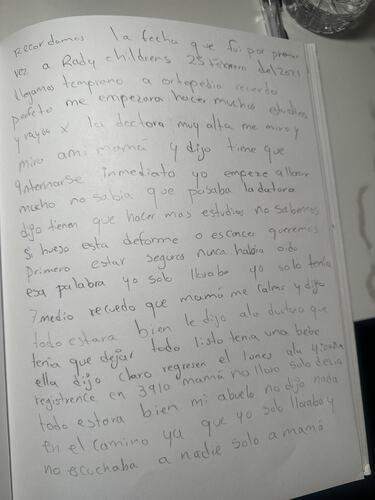 Recordamos la fecha que fui por primer
vez a Rady childrens 25 Febrero del 2021
llegamos temprano a ortopedia recuerdo
perfeto me empezara hacer muchos estudios
y rayos x la doctora muy alta me miro y
miro ami mama y dijo tiene que
internarse inmediato yo empeze allorar
mucho no sabia que pasaba la datora
dijo tienen que hacer mas estudios no sabemos
si hueso esta deforme o es cancer queremos
primero estar seguros nunca habia oido
esa palabra yo solo lloraba yo solo tenia
7 medio recuedo que mamá me calmo y dijo
todo estara bien le dijo ala doctora que
tenia que dejar todo listo tenia una bebe
ella dijo claro regresen el lunes alu
registrence en 3910 mamá no lloro solo decia
todo estara bien mi abuelo no dijo nada
en el camino ya que yo solo lloraba y
no escuchaba a nadie solo a mamá